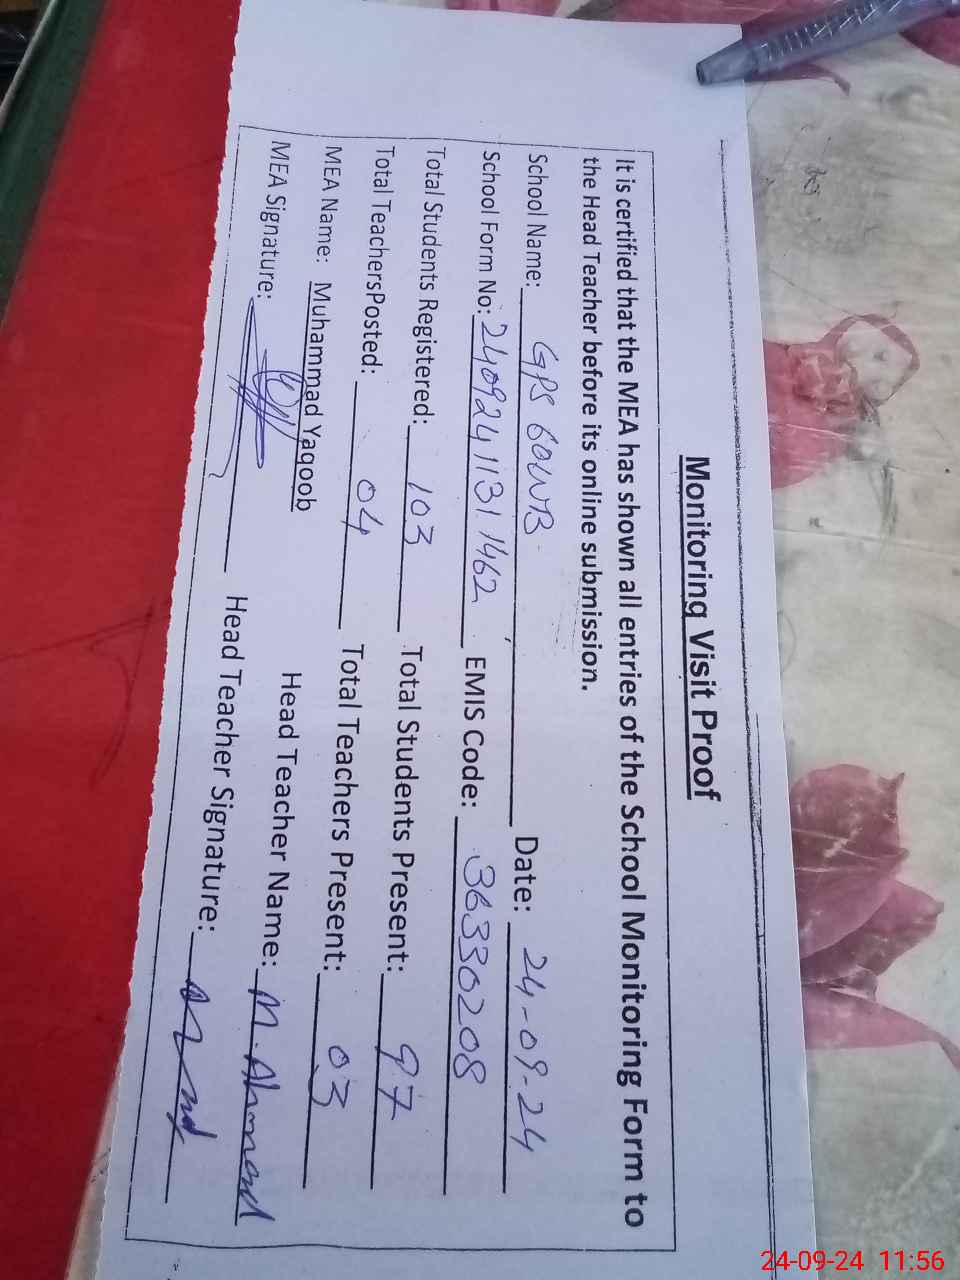 Monitoring Visit Proof
It is certified that the MEA has shown all entries of the School Monitoring Form to
the Head Teacher before its online submission.
School Name: GPS 60WB Date: 24-09-24
School Form No: 24092411311462 EMIS Code: 36330208
Total Students Registered: 103 Total Students Present: 97
Total TeachersPosted: 04 Total Teachers Present: 03
MEA Name: Muhammad Yaqoob Head Teacher Name: M. Ahmad
MEA Signature: Head Teacher Signature:
24-09-24 11:56